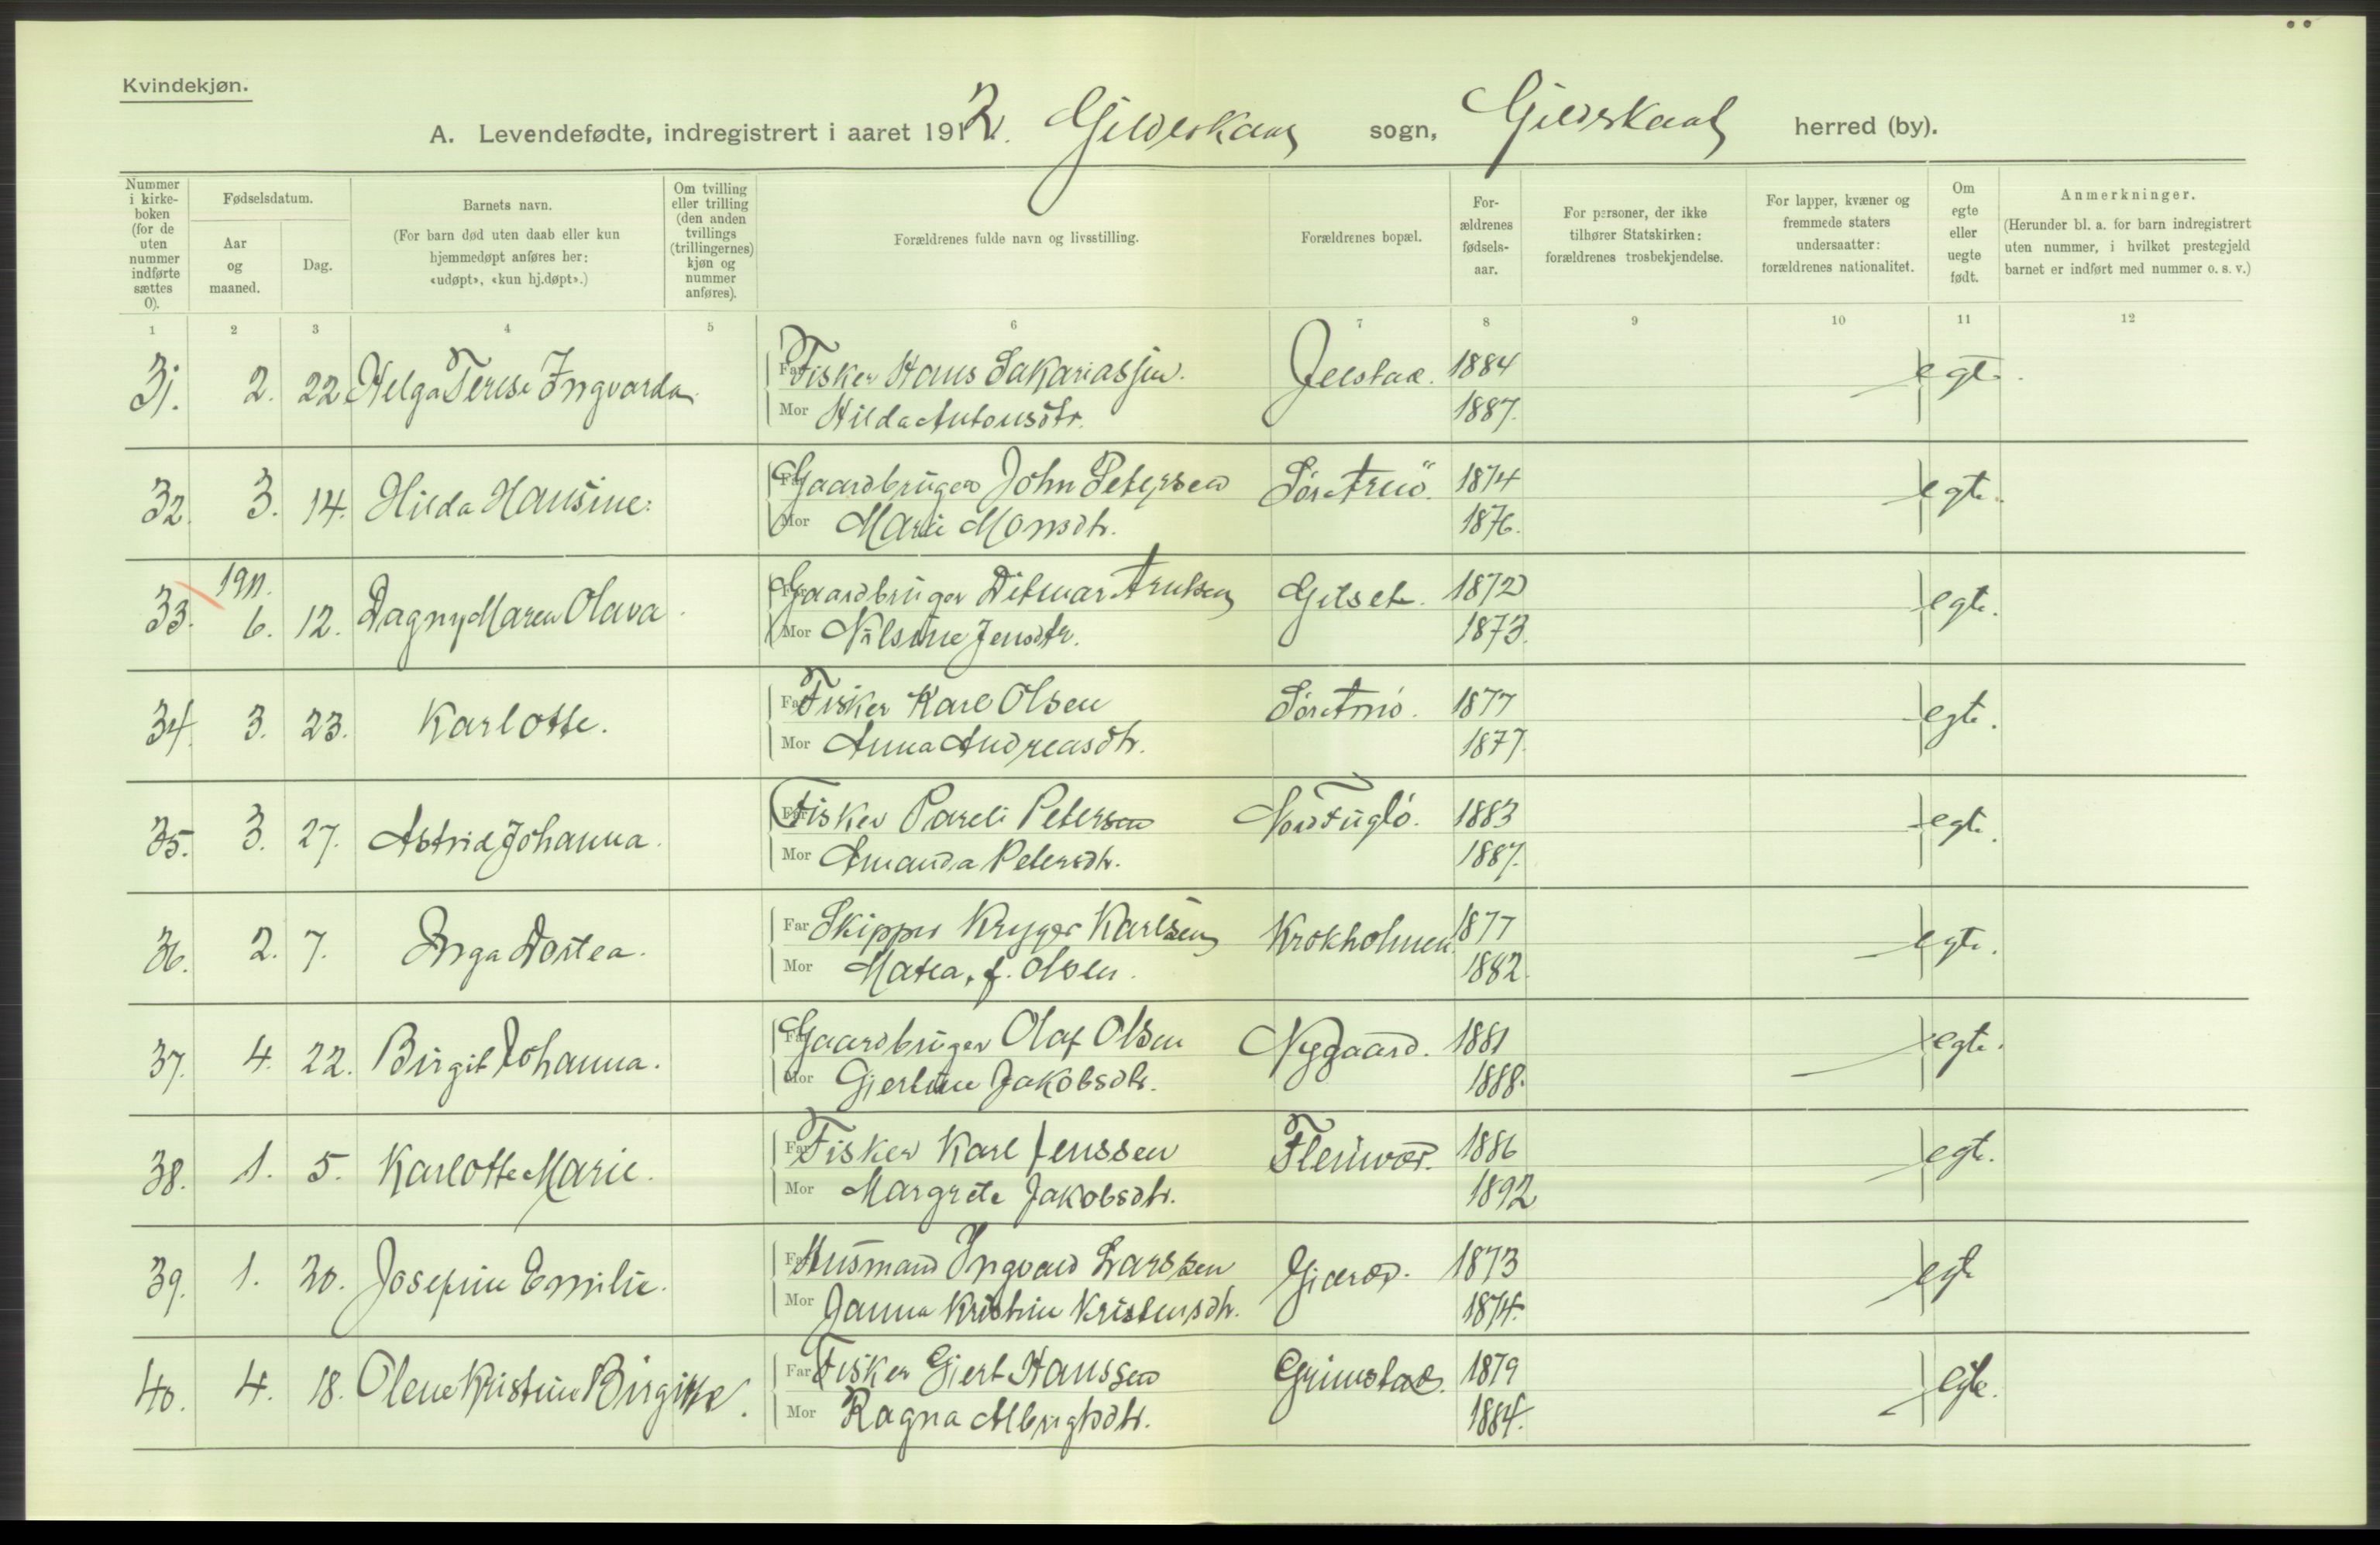 Kvindekjøn.
A. Levendefødte, indregistrert i aaret 1912. Gildeskaal sogn, Gildeskaal herred (by).
Nummer i kirke-boken (for de uten nummer indførte sættes 0).
Fødselsdatum.
Aar og maaned.
Dag.
Barnets navn.
(For barn død uten daab eller kun hjemmedøpt anføres her: «udøpt», «kun hj.døpt».)
Om tvilling eller trilling (den anden tvillings (trillingernes) kjøn og nummer anføres).
Forældrenes fulde navn og livsstilling.
Forældrenes bopæl.
For-ældrenes fødsels-aar.
For personer, der ikke tilhører Statskirken: forældrenes trosbekjendelse.
For lapper, kvæner og fremmede staters undersaatter: forældrenes nationalitet.
Om egte eller uegte født.
Anmerkninger.
(Herunder bl. a. for barn indregistrert uten nummer, i hvilket prestegjeld barnet er indført med nummer o. s. v.)
1 2 3 4 5 6 7 8 9 10 11 12
31. 2. 22 Helga Terese Ingvarda Far Fisker Hans Sakariassen. Jelstad. 1884 egte.
Mor Hilda Antonsdtr. 1887.
32. 3. 14. Hilda Hansine. Far Gaardbruger John Petersen Sør Arnö. 1874 egte.
Mor Marie Monsdtr. 1876.
1911.
33. 6. 12. Dagny Maren Olava. Far Gaardbruger Ditmar Arntsen Gilset. 1872 egte.
Mor Nilsine Jensdtr. 1873.
34. 3. 23. Karlotte. Far Fisker Karl Olsen Sør Arnö. 1877 egte.
Mor Anna Andreasdtr. 1877.
35. 3. 27. Astrid Johanna. Far Fisker Pareli Petersen Nord Fuglö. 1883 egte.
Mor Amanda Petersdtr. 1887.
36. 2. 7. Inga Dortea. Far Skipper Kryger Karlsen Krokholmen. 1877 egte.
Mor Matea, f. Olsen. 1882.
37. 4. 22. Birgit Johanna. Far Gaardbruger Olaf Olsen Nygaard. 1881 egte.
Mor Gjertine Jakobsdtr. 1888.
38. 1. 5. Karlotte Marie. Far Fisker Karl Jenssen Fleinvær. 1886 egte.
Mor Margrete Jakobsdtr. 1892
39. 1. 20. Josefine Emilie. Far Husmand Ingvard Larssen Gjærø. 1873 egte
Mor Janna Kristine Kristensdtr. 1874.
40. 4. 18. Olene Kristine Birgitte. Far Fisker Gjert Hanssen Grimstad. 1879 egte.
Mor Ragna Albrigtsdtr. 1884.